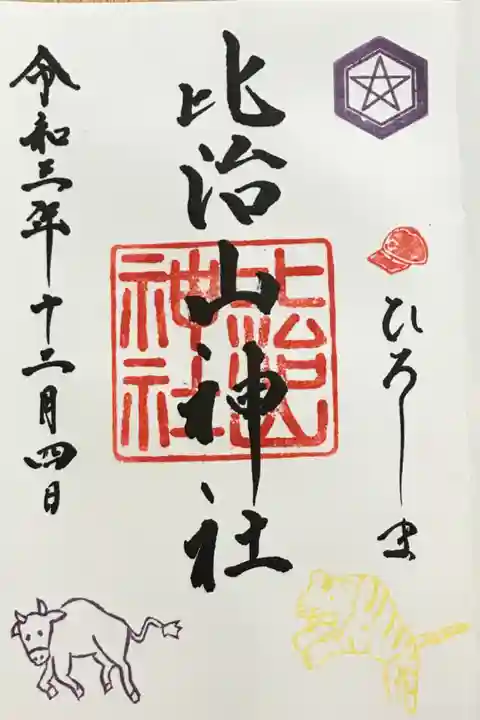 ひろしま
比治山神社
比治山
神社
令和三年十二月四日